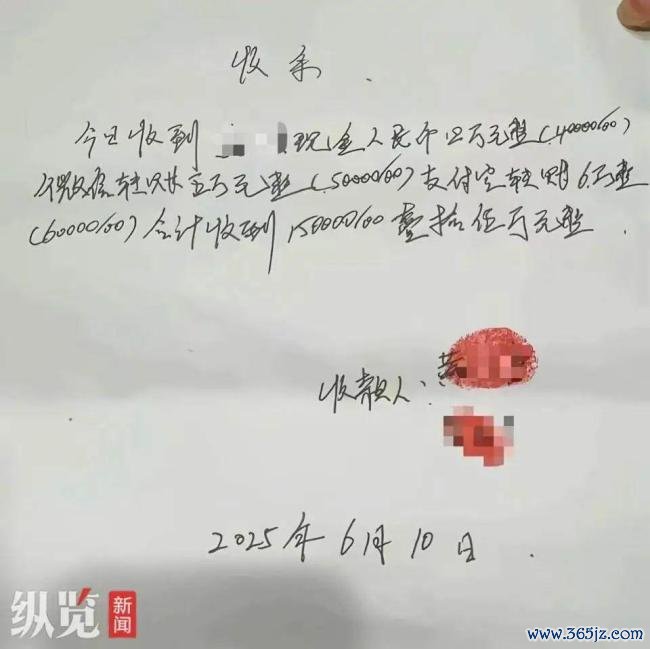 收条.
今日收到 现金人民币四万元整(40000/00)
微信转账五万元整(50000/00)支付宝转账6万整
(60000/00)合计收到150000/00壹拾伍万元整.
收款人:黄
2025年6月10日.
纵览新闻
www.365jz.com